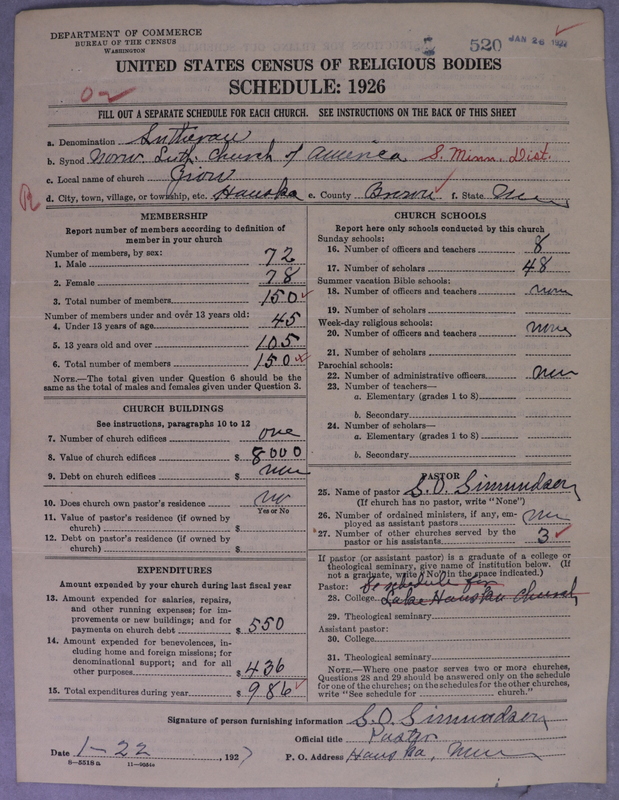 DEPARTMENT OF COMMERCE
BUREAU OF THE CENSUS
WASHINGTON
520 JAN 26 1927
UNITED STATES CENSUS OF RELIGIOUS BODIES
SCHEDULE: 1926
FILL OUT A SEPARATE SCHEDULE FOR EACH CHURCH. SEE INSTRUCTIONS ON THE BACK OF THIS SHEET
a. Denomination Lutheran
b. Synod Norw. Luth. Church of America S. Minn. Dist.
c. Local name of church
d. City, town, village, or township, etc. Hanska e. County Brown f. State Minn
MEMBERSHIP
Report number of members according to definition of member in your church
Number of members, by sex:
1. Male 72
2. Female 78
3. Total number of members 150
Number of members under and over 13 years old:
4. Under 13 years of age 45
5. 13 years old and over 105
6. Total number of members 150
NOTE.—The total given under Question 6 should be the same as the total of males and females given under Question 3.
CHURCH BUILDINGS
See instructions, paragraphs 10 to 12
7. Number of church edifices one
8. Value of church edifices $ 8000
9. Debt on church edifices $ none
10. Does church own pastor's residence no
Yes or No
11. Value of pastor's residence (if owned by church) $
12. Debt on pastor's residence (if owned by church) $
EXPENDITURES
Amount expended by your church during last fiscal year
13. Amount expended for salaries, repairs, and other running expenses; for improvements or new buildings; and for payments on church debt $ 550
14. Amount expended for benevolences, including home and foreign missions; for denominational support; and for all other purposes $ 436
15. Total expenditures during year $ 986
CHURCH SCHOOLS
Report here only schools conducted by this church
Sunday schools:
16. Number of officers and teachers 8
17. Number of scholars 48
Summer vacation Bible schools:
18. Number of officers and teachers none
19. Number of scholars
Week-day religious schools:
20. Number of officers and teachers none
21. Number of scholars
Parochial schools:
22. Number of administrative officers none
23. Number of teachers—
a. Elementary (grades 1 to 8)
b. Secondary
24. Number of scholars—
a. Elementary (grades 1 to 8)
b. Secondary
PASTOR
25. Name of pastor S.O. Simundson
(If church has no pastor, write "None")
26. Number of ordained ministers, if any, employed as assistant pastors
27. Number of other churches served by the pastor or his assistants 3
If pastor (or assistant pastor) is a graduate of a college or theological seminary, give name of institution below. (If not a graduate, write "No" in the space indicated.)
Pastor: See schedule for
28. College Lake Hanska Church
29. Theological seminary
Assistant pastor:
30. College
31. Theological seminary
NOTE.—Where one pastor serves two or more churches, Questions 28 and 29 should be answered only on the schedule for one of the churches; on the schedules for the other churches, write "See schedule for church."
Signature of person furnishing information S.O. Simundson
Official title Pastor
Date 1-22, 1927 P. O. Address Hanska, Minn
8-5518a 11-9554a